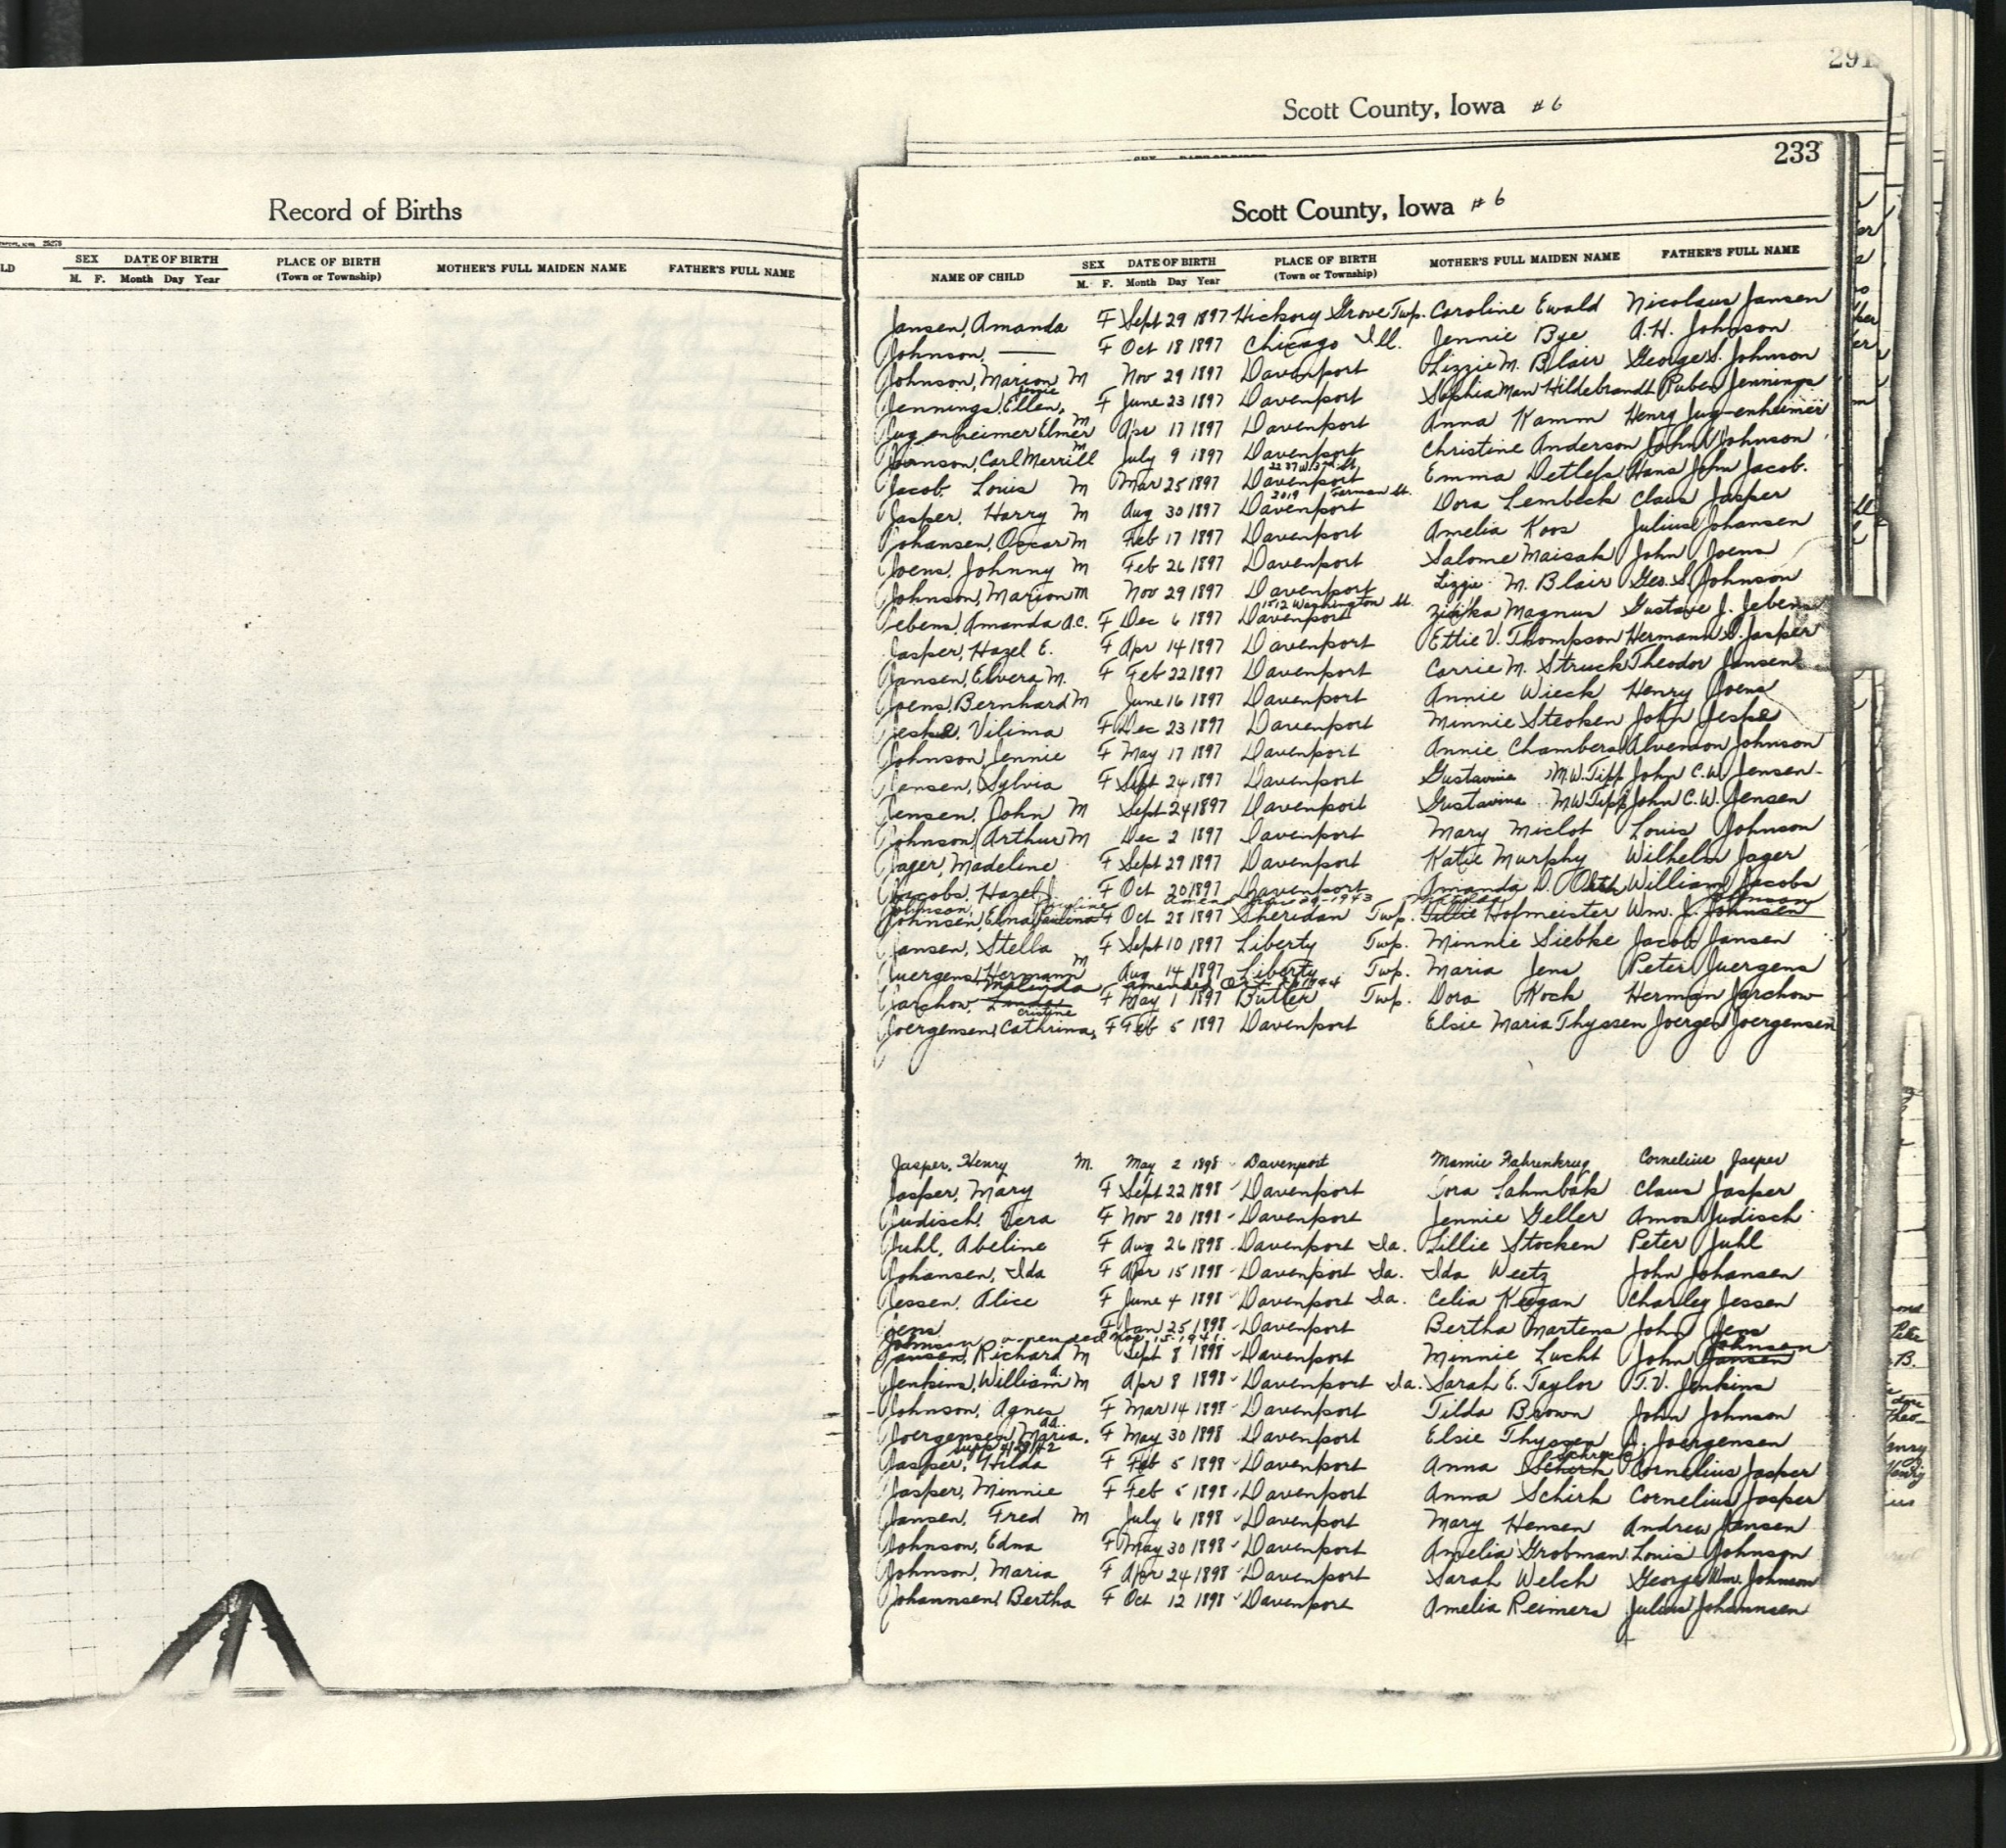 291
Scott County, Iowa # 6
233
Record of Births
Scott County, Iowa # 6
LD SEX DATE OF BIRTH PLACE OF BIRTH MOTHER'S FULL MAIDEN NAME FATHER'S FULL NAME
M. F. Month Day Year (Town or Township)
NAME OF CHILD SEX DATE OF BIRTH PLACE OF BIRTH MOTHER'S FULL MAIDEN NAME FATHER'S FULL NAME
M. F. Month Day Year (Town or Township)
Jansen, Amanda F Sept 29 1897 Hickory Grove Twp. Caroline Ewald Nicolaus Jansen
Johnson, — F Oct 18 1897 Chicago Ill. Jennie Bye A. H. Johnson
Johnson, Marion M Nov 29 1897 Davenport Lizzie M. Blair George S. Johnson
Jennings, Ellen, F June 23 1897 Davenport Sophia Hildebrandt Ruben Jennings
Jugenheimer Elmer M Apr 17 1897 Davenport Anna Kamm Henry Jugenheimer
Johnson, Carl Merrill M July 9 1897 Davenport Christine Anderson John Johnson
Jacob, Louis M Mar 25 1897 Davenport Emma Detlefs Hans John Jacob.
2019 German St.
Jasper, Harry M Aug 30 1897 Davenport Dora Lembeck Claus Jasper
Johansen, Oscar M Feb 17 1897 Davenport Amelia Koos Julius Johansen
Joens, Johnny M Feb 26 1897 Davenport Salome Maisak John Joens
Johnson, Marion M Nov 29 1897 Davenport Lizzie M. Blair Geo. S. Johnson
1512 Washington St.
Jebens, Amanda A.C. F Dec 6 1897 Davenport Magnus Gustave J. Jebens
Jasper, Hazel E. F Apr 14 1897 Davenport Ettie V. Thompson Hermann S. Jasper
Jansen, Elvera M. F Feb 22 1897 Davenport Carrie M. Struck Theodor Jansen
Joens, Bernhard M June 16 1897 Davenport Annie Wieck Henry Joens
Jeske, Vilima F Dec 23 1897 Davenport Minnie Steoken John Jeske
Johnson, Jennie F May 17 1897 Davenport Annie Chambers Alvenson Johnson
Jensen, Sylvia F Sept 24 1897 Davenport Gustavine M. W. Tipp John C. W. Jensen
Jensen, John M Sept 24 1897 Davenport Gustavine M W Tipp John C. W. Jensen
Johnson, Arthur M Dec 2 1897 Davenport Mary Miclot Louis Johnson
Jager, Madeline F Sept 29 1897 Davenport Katie Murphy Wilhelm Jager
Jacobs, Hazel J. F Oct 20 1897 Davenport Amanda D. Orth William Jacobs
Johnson, Pauline Johnson
Johnsen, Elna Paulina F Oct 28 1897 Sheridan Twp. Tillie Hofmeister Wm. J. Johnsen
Jansen, Stella F Sept 10 1897 Liberty Twp. Minnie Siebke Jacob Jansen
Juergens, Hermann M Aug 14 1897 Liberty Twp. Maria Jens Peter Juergens
Malinda, amended Oct
Jarchow, Linda F May 1 1897 Butler Twp. Dora Koch Herman Jarchow
cristine
Joergensen, Cathrina, F Feb 5 1897 Davenport Elsie Maria Thyssen Joergen Joergensen
Jasper, Henry M. May 2 1898 Davenport Mamie Fahrenkrug Cornelius Jasper
Jasper, Mary F Sept 22 1898 Davenport Dora Lahmbak Claus Jasper
Judisch, Vera F Nov 20 1898 Davenport Jennie Geller Amos Judisch
Juhl, Abeline F Aug 26 1898 Davenport Ia. Lillie Stocken Peter Juhl
Johansen, Ida F Apr 15 1898 Davenport Ia. Ida Weetz John Johansen
Jessen, Alice F June 4 1898 Davenport Ia. Celia Keegan Charley Jessen
Jens F Jan 25 1898 Davenport Bertha Martens John Jens
Johnson amended Nov. 15, 1941. Johnsen
Jansen, Richard M Sept 8 1898 Davenport Minnie Lucht John Jansen
Jenkins, William A. M Apr 8 1898 Davenport Ia. Sarah E. Taylor T. V. Jenkins
Johnson, Agnes F Mar 14 1898 Davenport Tilda Brown John Johnson
Joergensen, Maria, F May 30 1898 Davenport Elsie Thyssen J. Joergensen
Jasper, Hilda F Feb 5 1898 Davenport Anna Schirk Cornelius Jasper
Jasper, Minnie F Feb 5 1898 Davenport Anna Schirk Cornelius Jasper
Jansen, Fred M July 6 1898 Davenport Mary Hensen Andrew Jansen
Johnson, Edna F May 30 1898 Davenport Amelia Grobman Louis Johnson
Johnson, Maria F Apr 24 1898 Davenport Sarah Welch George Wm. Johnson
Johannsen, Bertha F Oct 12 1898 Davenport Amelia Reimers Julius Johannsen